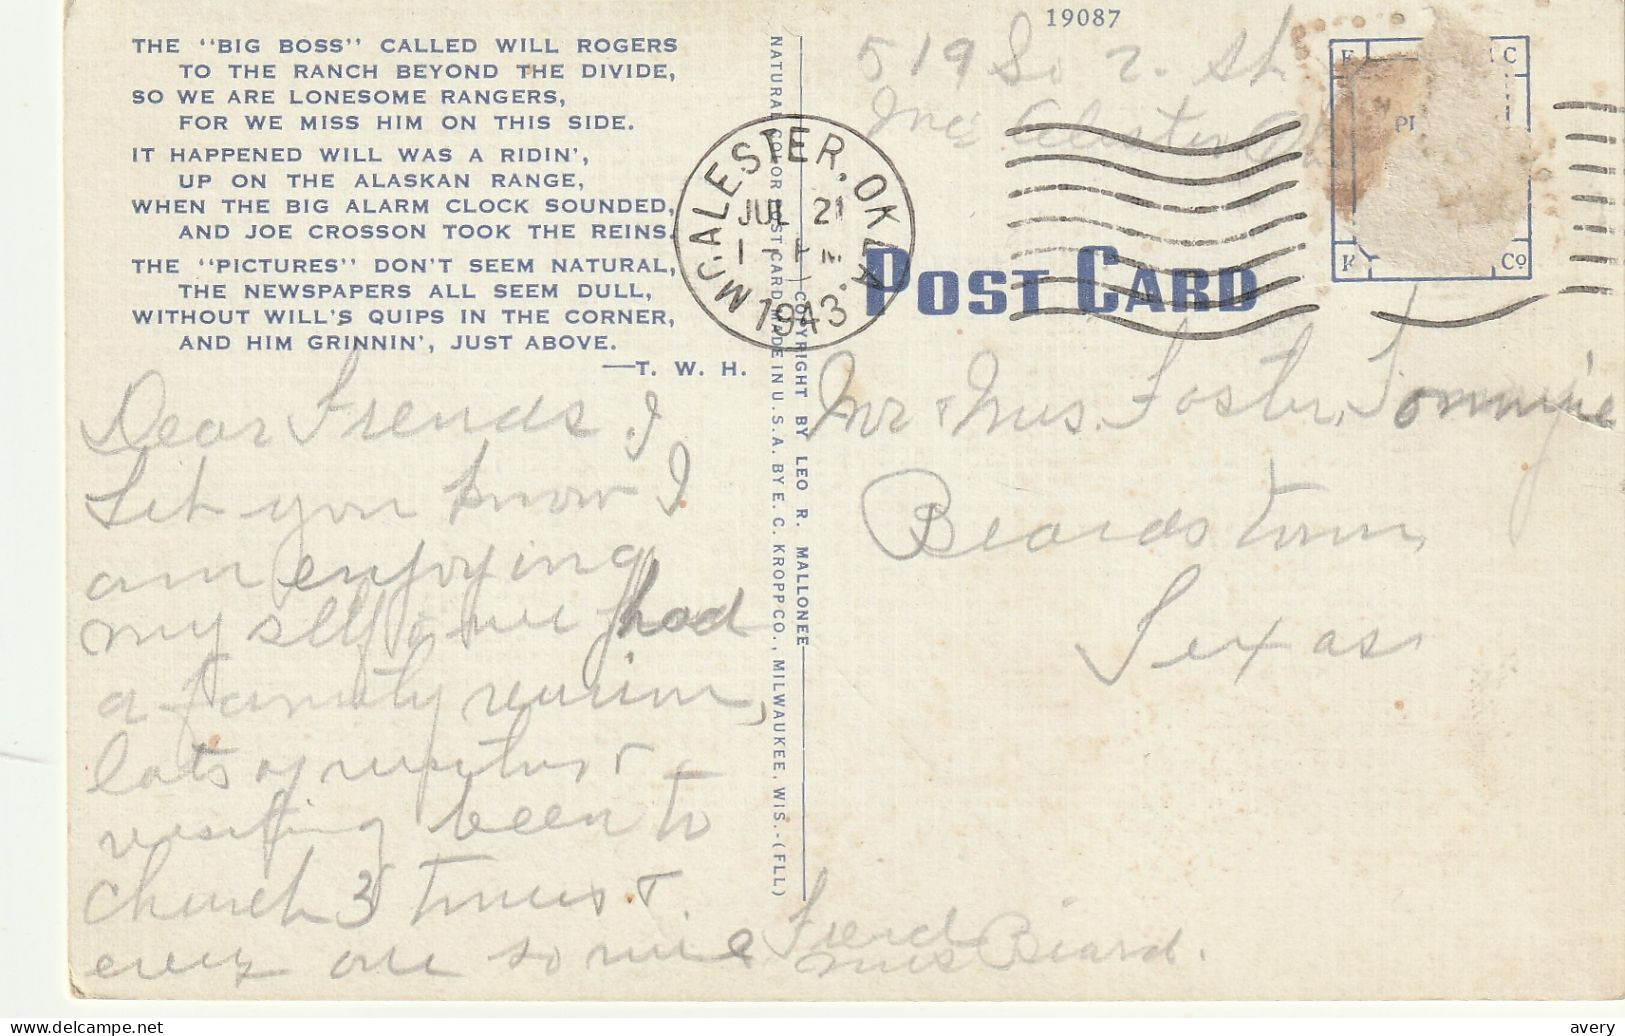 THE "BIG BOSS" CALLED WILL ROGERS
TO THE RANCH BEYOND THE DIVIDE,
SO WE ARE LONESOME RANGERS,
FOR WE MISS HIM ON THIS SIDE.
IT HAPPENED WILL WAS A RIDIN',
UP ON THE ALASKAN RANGE,
WHEN THE BIG ALARM CLOCK SOUNDED,
AND JOE CROSSON TOOK THE REINS.
THE "PICTURES" DON'T SEEM NATURAL,
THE NEWSPAPERS ALL SEEM DULL,
WITHOUT WILL'S QUIPS IN THE CORNER,
AND HIM GRINNIN', JUST ABOVE.
—T. W. H.
Dear Friends. I
Let you know I
am enjoying
my self & we had
a family reunion,
lots of visitors &
visiting been to
Church 3 times &
every one so nice
Friend
Mrs Beard.
NATURAL COLOR POST CARD MADE IN U.S.A. BY E. C. KROPP CO., MILWAUKEE, WIS.-(FLL)
COPYRIGHT BY LEO R. MALLONEE
MCALESTER, OKLA.
JUL 21
1943
19087
519 So 2. st
POST CARD
E C
K Co
Mr & Mrs. Foster, Tommye
Beardstown,
Texas
avery
www.delcampe.net